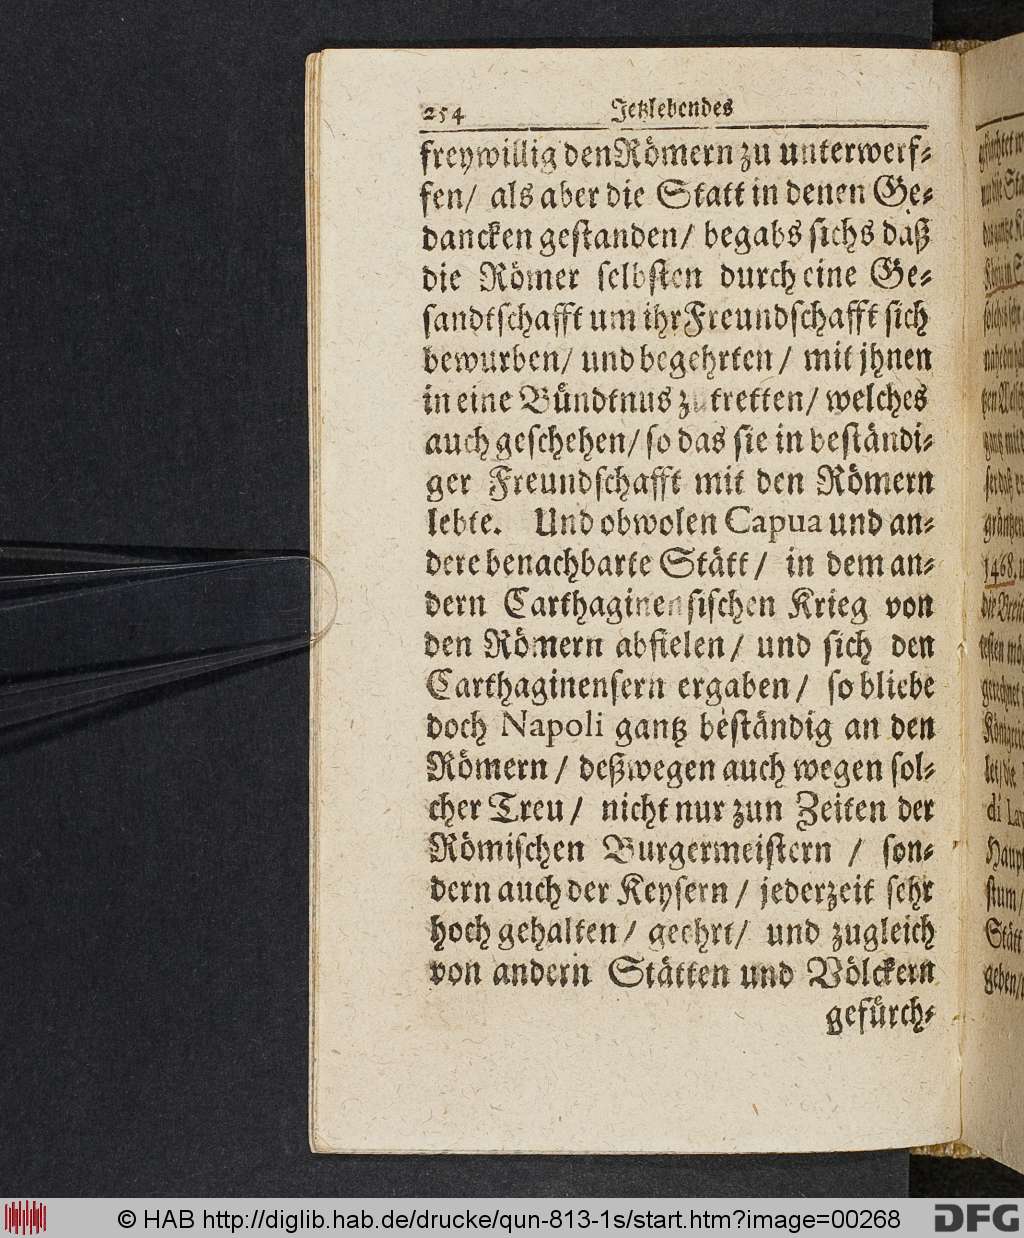 254 Jetzlebendes
freywillig den Römern zu unterwerf-
fen/ als aber die Statt in denen Ge-
dancken gestanden/ begabs sichs daß
die Römer selbsten durch eine Ge-
sandtschafft um ihr Freundschafft sich
bewurben/ und begehrten/ mit jhnen
in eine Bündtnus zu tretten/ welches
auch geschehen/ so das sie in beständi-
ger Freundschafft mit den Römern
lebte. Und obwolen Capua und an-
dere benachbarte Stätt/ in dem an-
dern Carthaginensischen Krieg von
den Römern abfielen/ und sich den
Carthaginensern ergaben/ so bliebe
doch Napoli gantz beständig an den
Römern/ deßwegen auch wegen sol-
cher Treu/ nicht nur zun Zeiten der
Römischen Burgermeistern / son-
dern auch der Keysern/ jederzeit sehr
hoch gehalten/ geehrt/ und zugleich
von andern Stätten und Völckern
gefürch-
© HAB http://diglib.hab.de/drucke/qun-813-1s/start.htm?image=00268
DFG